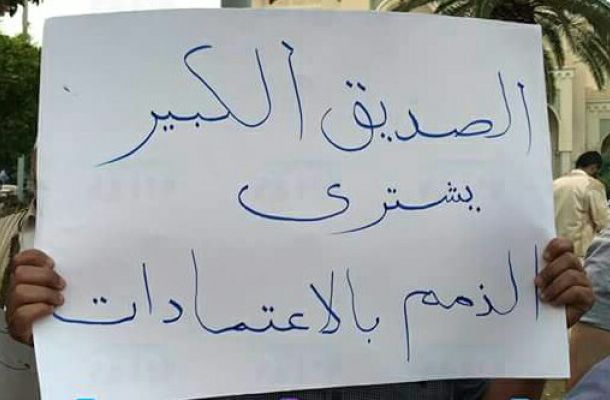 الصديق الكبير
يشترى
الذمم بالاعتمادات